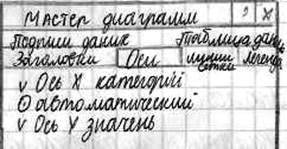 Мастер диаграмм ? X
Подписи даних Таблица данных
Заголовки Оси линии сетки легенда
v Ось X категорий
⊙ автоматический
v Ось Y значень